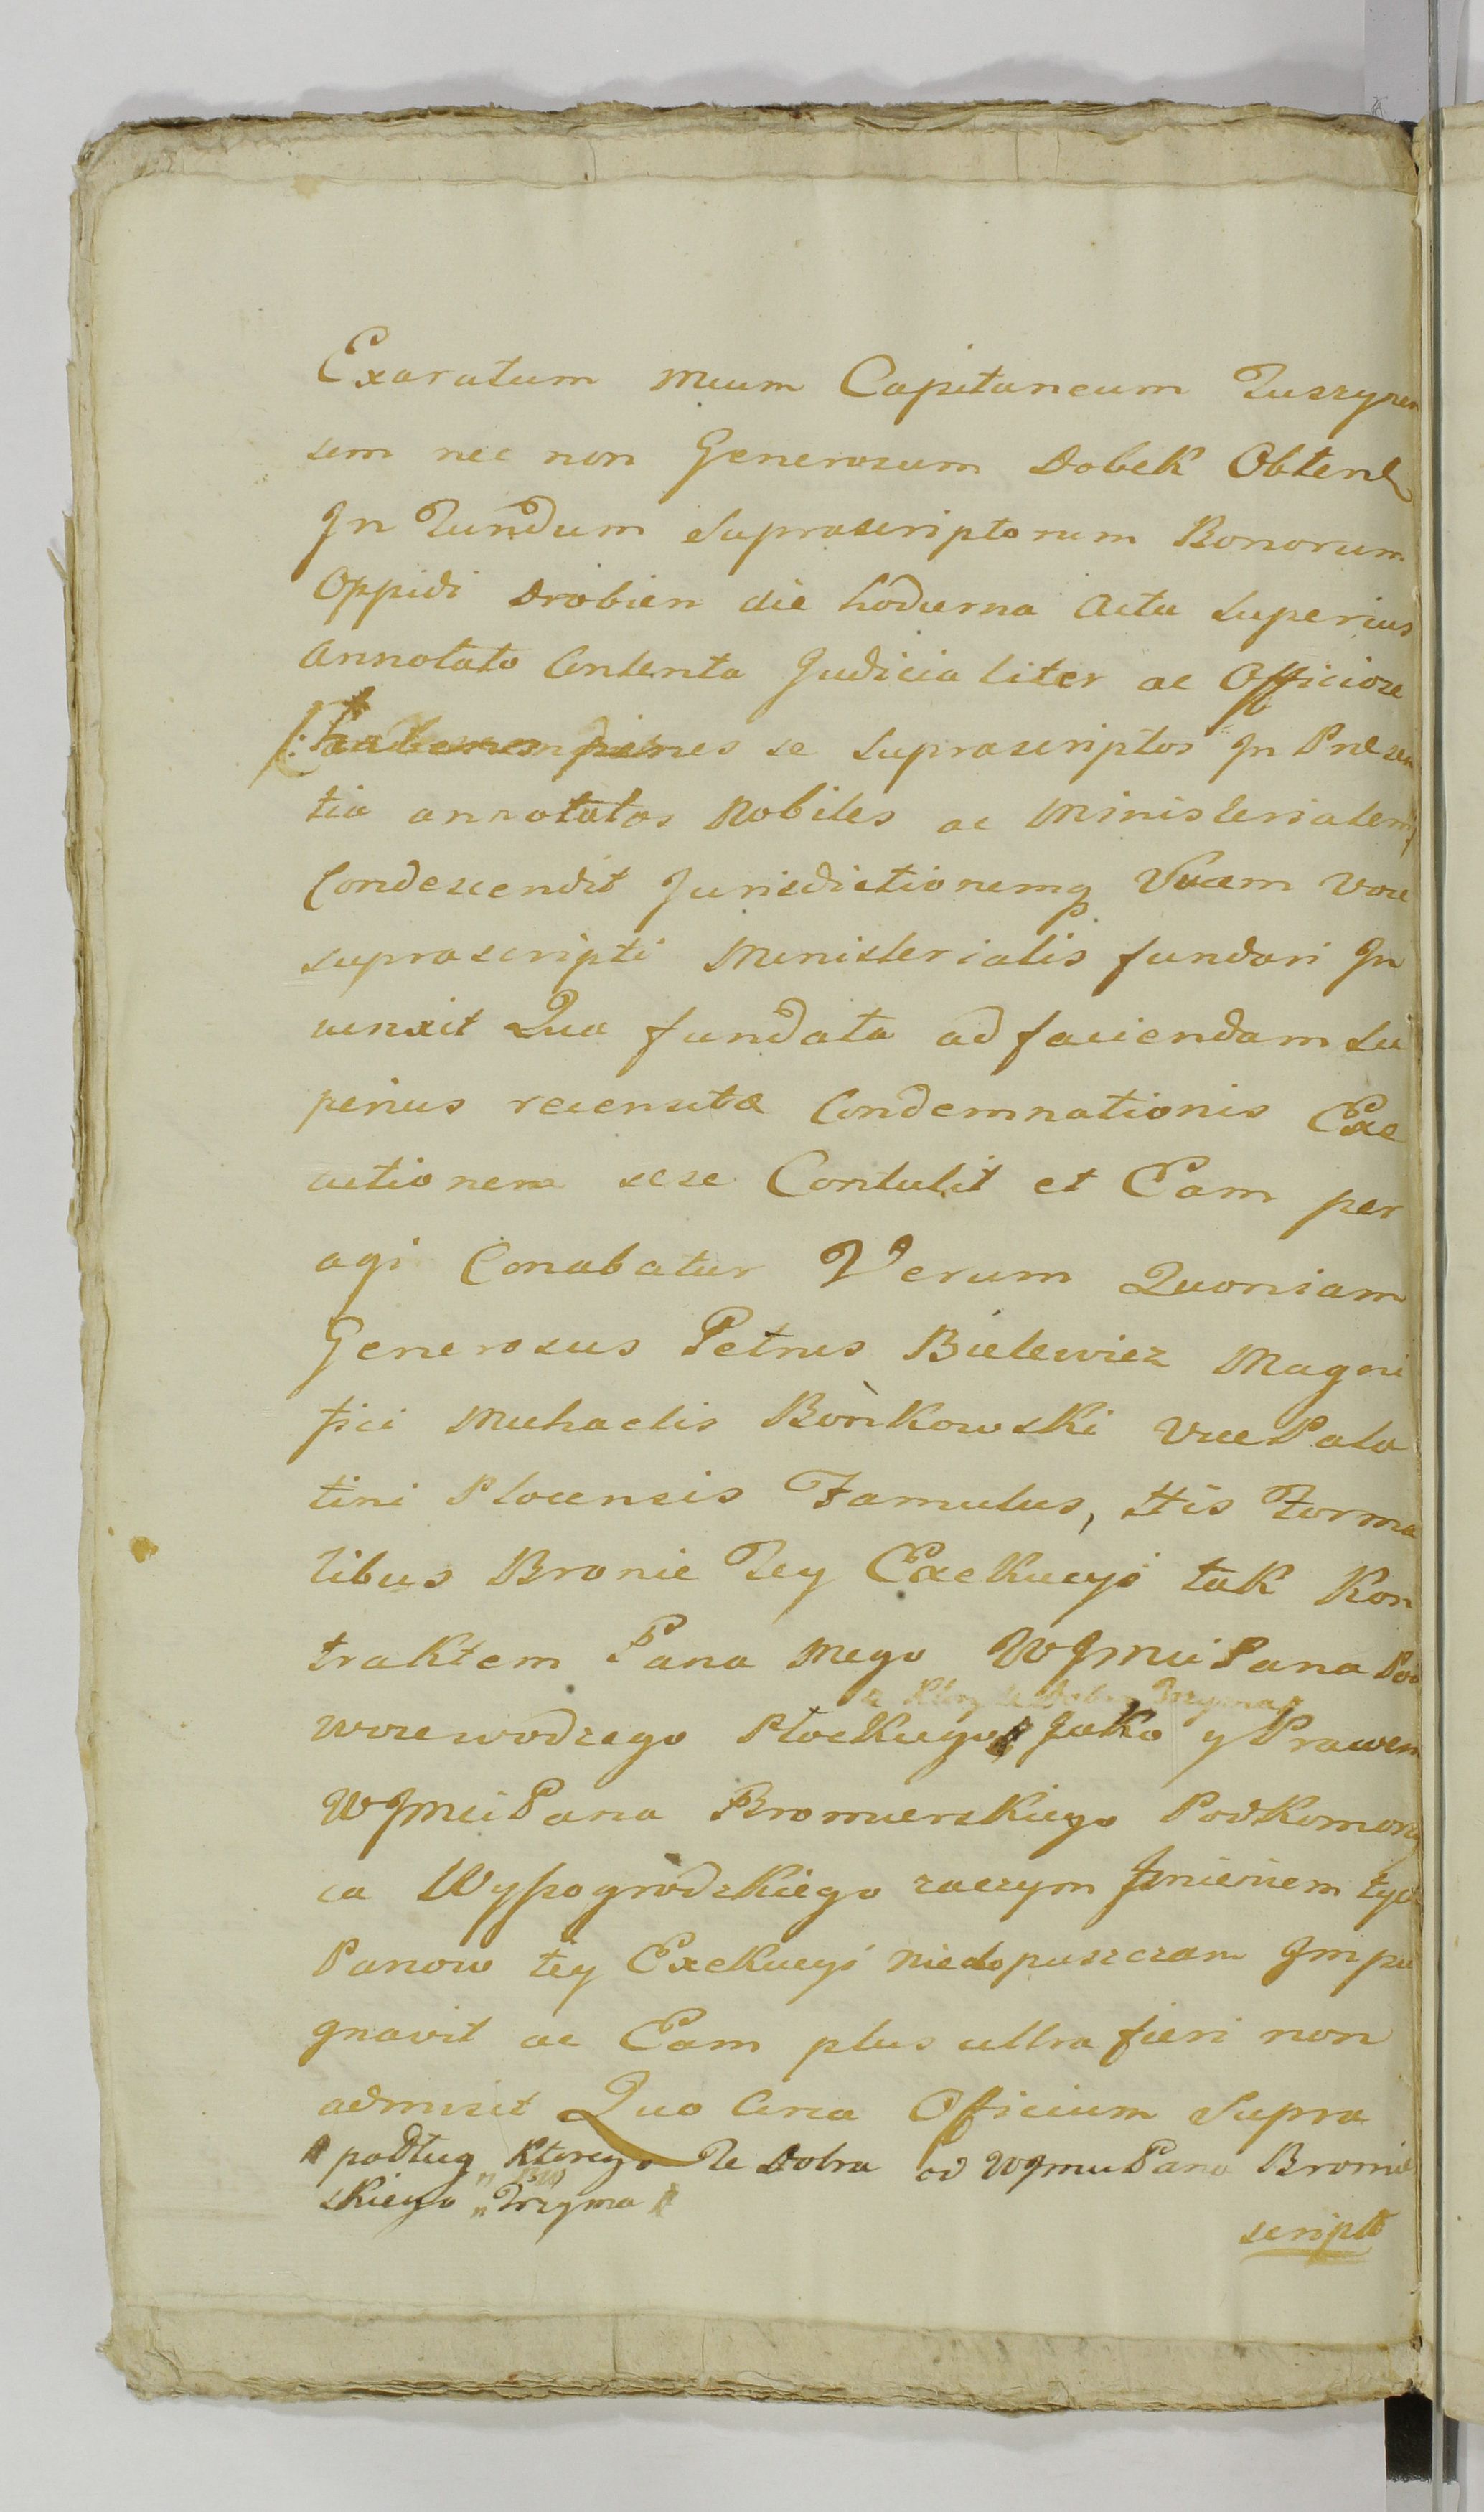 Exaratum meum Capitaneum Tuszynen
sem nec non Generosum Dobek Obtent
In Fundum Suprascriptorum Bonorum
Oppidi Drobien die hodierna Actu Superius
Annotato Contenta Judicialiter ac Officiose
penes se Suprascriptos In Praesen
tia annotatos Nobiles ac Ministerialem
Condescendit Jurisdictionemq Suam Voce
suprascripti Ministerialis fundari In
iunxit Qua fundata ad faciendam Su
perius recensitæ Condemnationis Exe
cutionem sese Contulit et Eam per
agi Conabatur Verum Quoniam
Generosus Petrus Bielewicz Magni
fici Michaelis Bońkowski VicePala
tini Plocensis Famulus, His Forma
libus Bronie Tey Exekucyi tak Kon
traktem Pana Mego WJmci Pana Pod
woiewodzego Płockiego Jako y Prawem
WJmciPana Bromierskiego Podkomorzy
ca Wyszogrodzkiego zaczym Imieniem tych
Panow tey Exekucyi niedopuszczam Impu
gnavit ac Eam plus ultra fieri non
admisit Quo Circa Officium Supra
podług ktorego Te Dobra od WJmciPana Bromier
skiego Trzyma
script